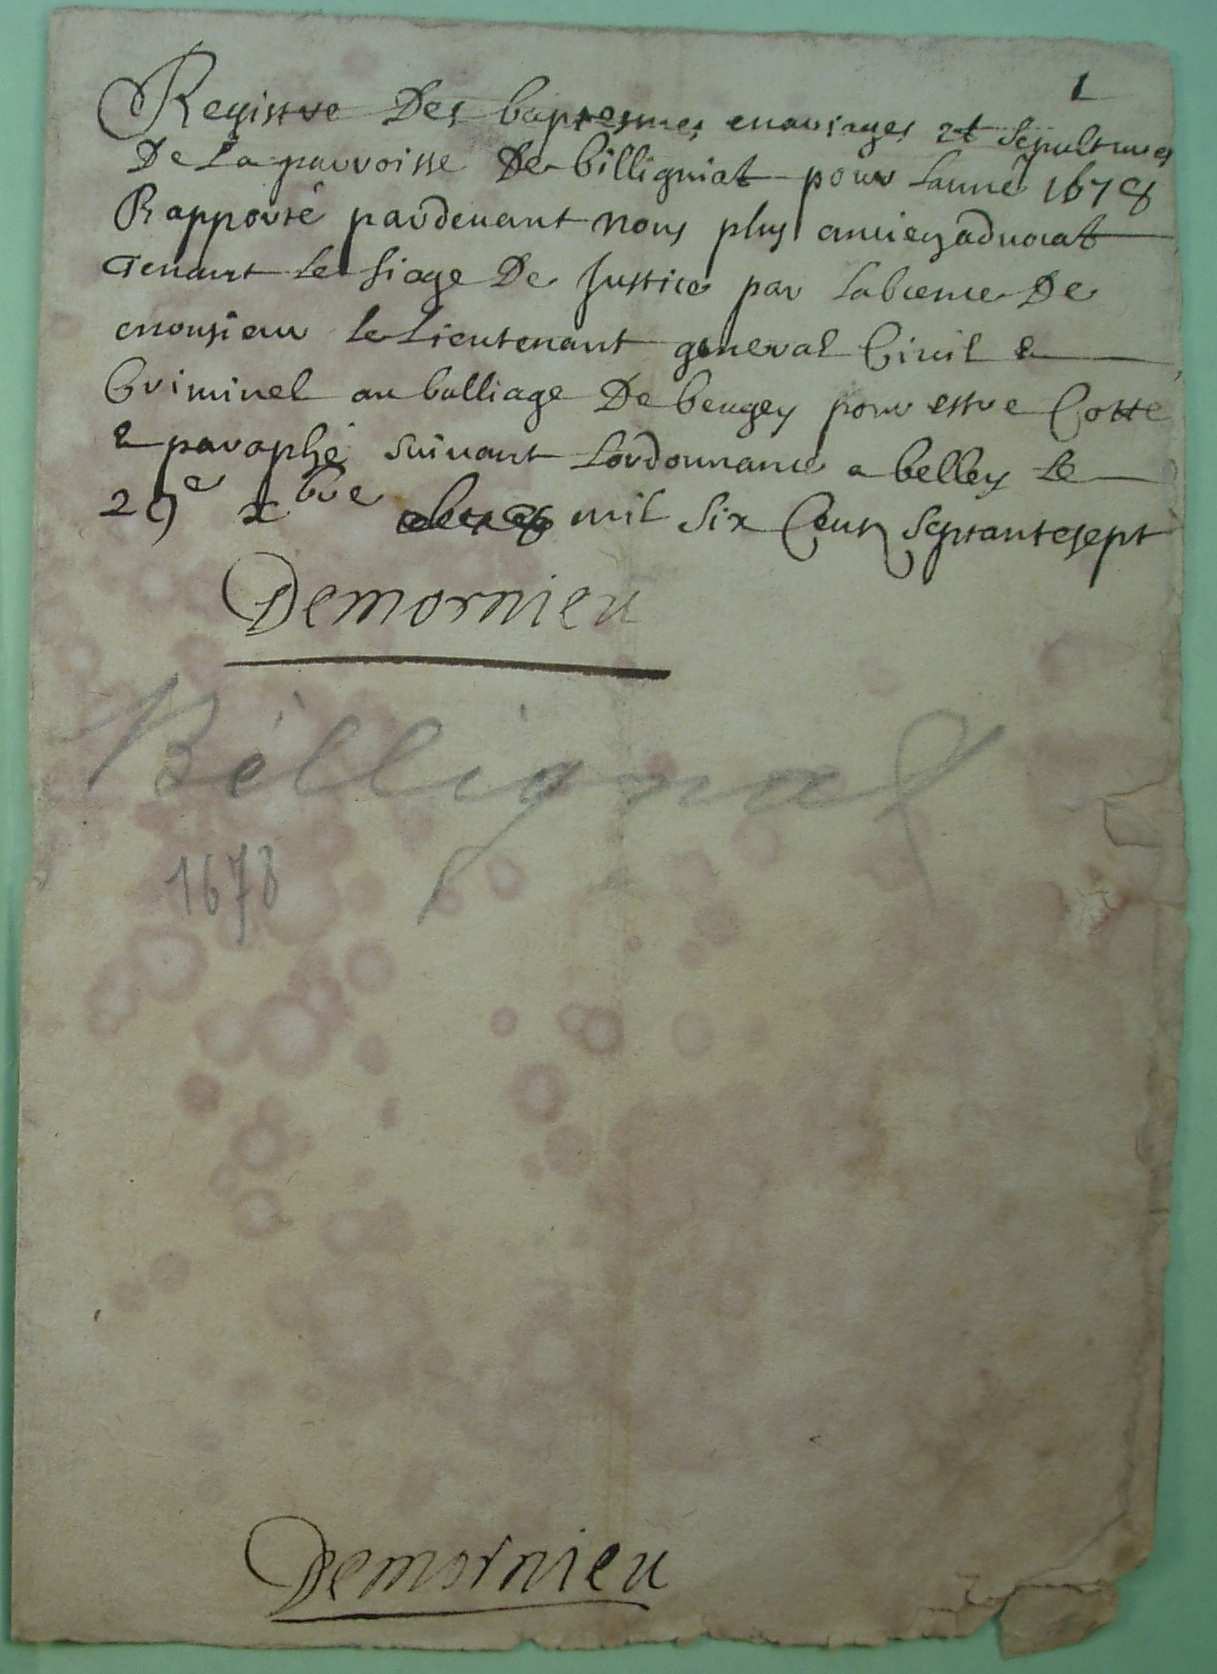 1
Registre Des baptesmes mariages et sepultures
De La parroisse De billigniat pour Lanné 1678
Rapporté pardeuant Nous plus ancien aduocat
Tenant Le siege De Justice par Labcence De
monsieur le Lieutenant general Ciuil &
Criminel au balliage De beugey pour estre Cotte
& paraphé suiuant Lordonnance a belley Le
29e xbre mil six Cent septantesept
Demornieu
Bélligna
1678
Demornieu